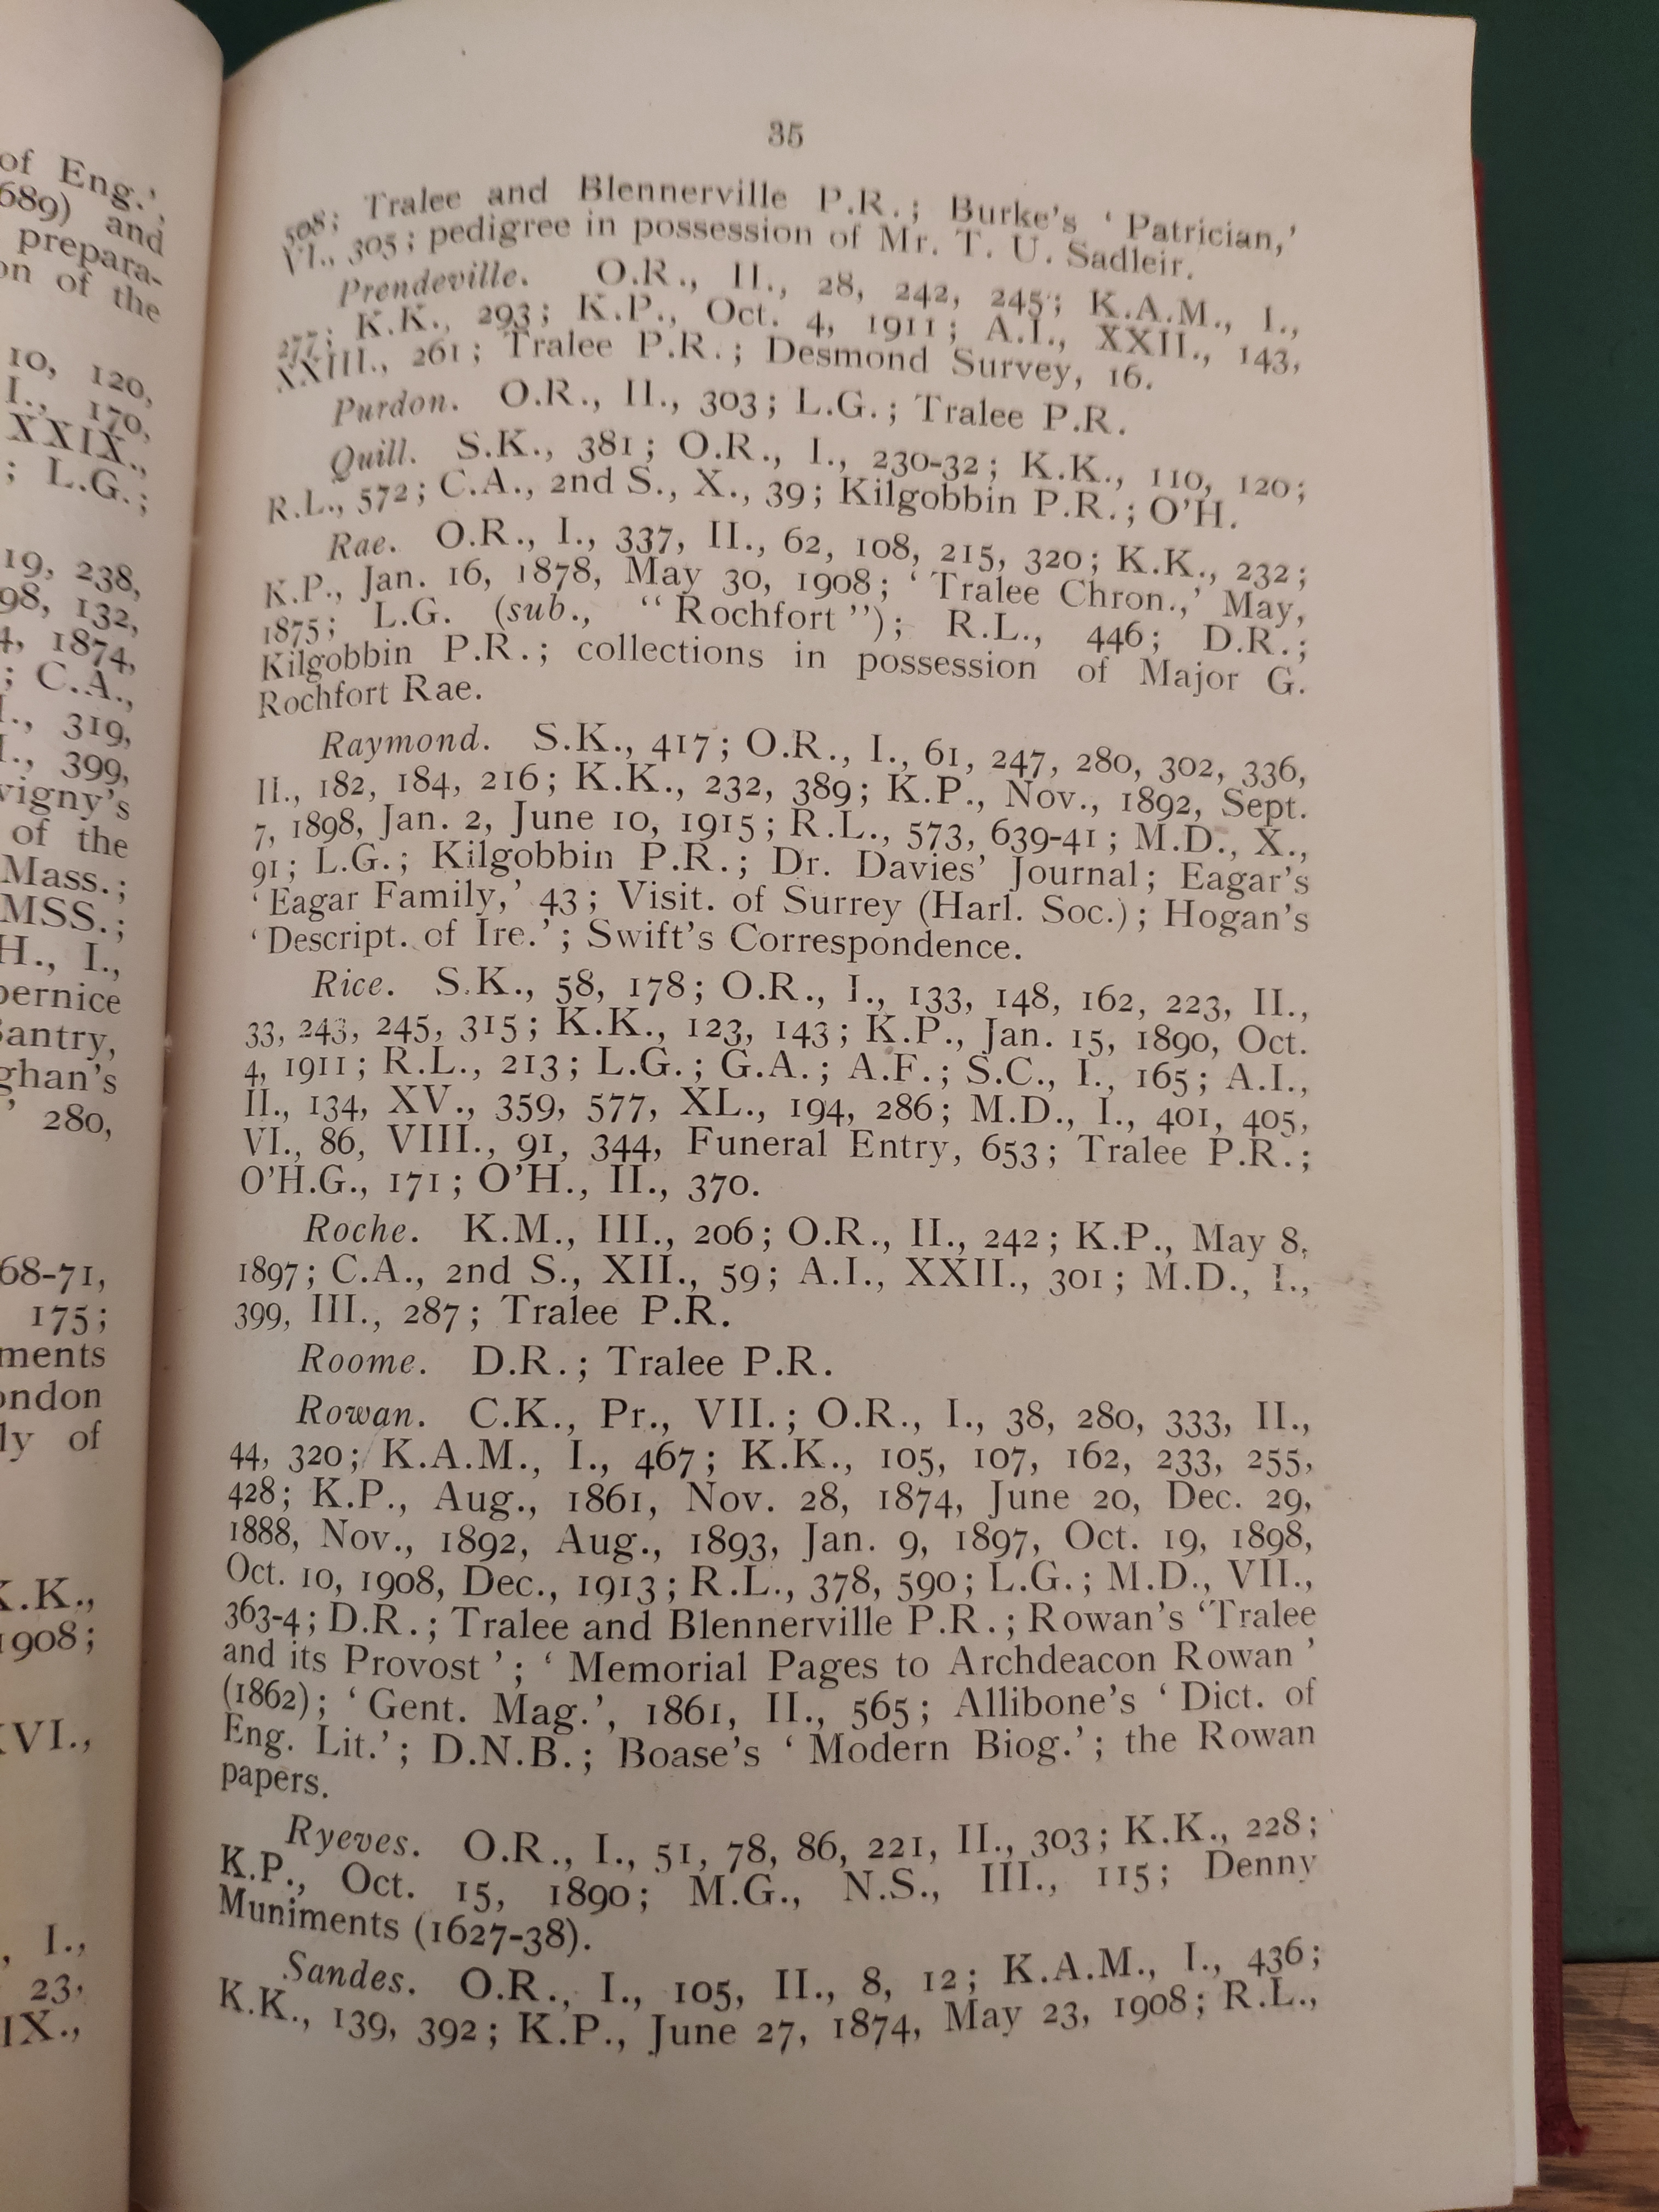 of Eng.',
689) and
prepara-
on of the
10, 120,
I., 170,
XXIX.,
; L.G.;
19, 238,
98, 132,
4, 1874,
; C.A.,
I., 319,
I., 399,
vigny's
of the
Mass.;
MSS.;
H., I.,
bernice
Bantry,
ghan's
' 280,
68-71,
175;
ments
ondon
ly of
K.K.,
1908;
XVI.,
, I.,
23,
IX.,
35
508; Tralee and Blennerville P.R.; Burke's ' Patrician,'
VI., 305; pedigree in possession of Mr. T. U. Sadleir.
Prendeville. O.R., II., 28, 242, 245; K.A.M., I.,
277; K.K., 293; K.P., Oct. 4, 1911; A.I., XXII., 143,
XXIII., 261; Tralee P.R.; Desmond Survey, 16.
Purdon. O.R., II., 303; L.G.; Tralee P.R.
Quill. S.K., 381; O.R., I., 230-32; K.K., 110, 120;
R.L., 572; C.A., 2nd S., X., 39; Kilgobbin P.R.; O'H.
Rae. O.R., I., 337, II., 62, 108, 215, 320; K.K., 232;
K.P., Jan. 16, 1878, May 30, 1908; ' Tralee Chron.,' May,
1875; L.G. (sub., "Rochfort"); R.L., 446; D.R.;
Kilgobbin P.R.; collections in possession of Major G.
Rochfort Rae.
Raymond. S.K., 417; O.R., I., 61, 247, 280, 302, 336,
II., 182, 184, 216; K.K., 232, 389; K.P., Nov., 1892, Sept.
7, 1898, Jan. 2, June 10, 1915; R.L., 573, 639-41; M.D., X.,
91; L.G.; Kilgobbin P.R.; Dr. Davies' Journal; Eagar's
' Eagar Family,' 43; Visit. of Surrey (Harl. Soc.); Hogan's
' Descript. of Ire.'; Swift's Correspondence.
Rice. S.K., 58, 178; O.R., I., 133, 148, 162, 223, II.,
33, 243, 245, 315; K.K., 123, 143; K.P., Jan. 15, 1890, Oct.
4, 1911; R.L., 213; L.G.; G.A.; A.F.; S.C., I., 165; A.I.,
II., 134, XV., 359, 577, XL., 194, 286; M.D., I., 401, 405,
VI., 86, VIII., 91, 344, Funeral Entry, 653; Tralee P.R.;
O'H.G., 171; O'H., II., 370.
Roche. K.M., III., 206; O.R., II., 242; K.P., May 8,
1897; C.A., 2nd S., XII., 59; A.I., XXII., 301; M.D., I.,
399, III., 287; Tralee P.R.
Roome. D.R.; Tralee P.R.
Rowan. C.K., Pr., VII.; O.R., I., 38, 280, 333, II.,
44, 320; K.A.M., I., 467; K.K., 105, 107, 162, 233, 255,
428; K.P., Aug., 1861, Nov. 28, 1874, June 20, Dec. 29,
1888, Nov., 1892, Aug., 1893, Jan. 9, 1897, Oct. 19, 1898,
Oct. 10, 1908, Dec., 1913; R.L., 378, 590; L.G.; M.D., VII.,
363-4; D.R.; Tralee and Blennerville P.R.; Rowan's 'Tralee
and its Provost'; ' Memorial Pages to Archdeacon Rowan '
(1862); ' Gent. Mag.', 1861, II., 565; Allibone's ' Dict. of
Eng. Lit.'; D.N.B.; Boase's ' Modern Biog.'; the Rowan
papers.
Ryeves. O.R., I., 51, 78, 86, 221, II., 303; K.K., 228;
K.P., Oct. 15, 1890; M.G., N.S., III., 115; Denny
Muniments (1627-38).
Sandes. O.R., I., 105, II., 8, 12; K.A.M., I., 436;
K.K., 139, 392; K.P., June 27, 1874, May 23, 1908; R.L.,